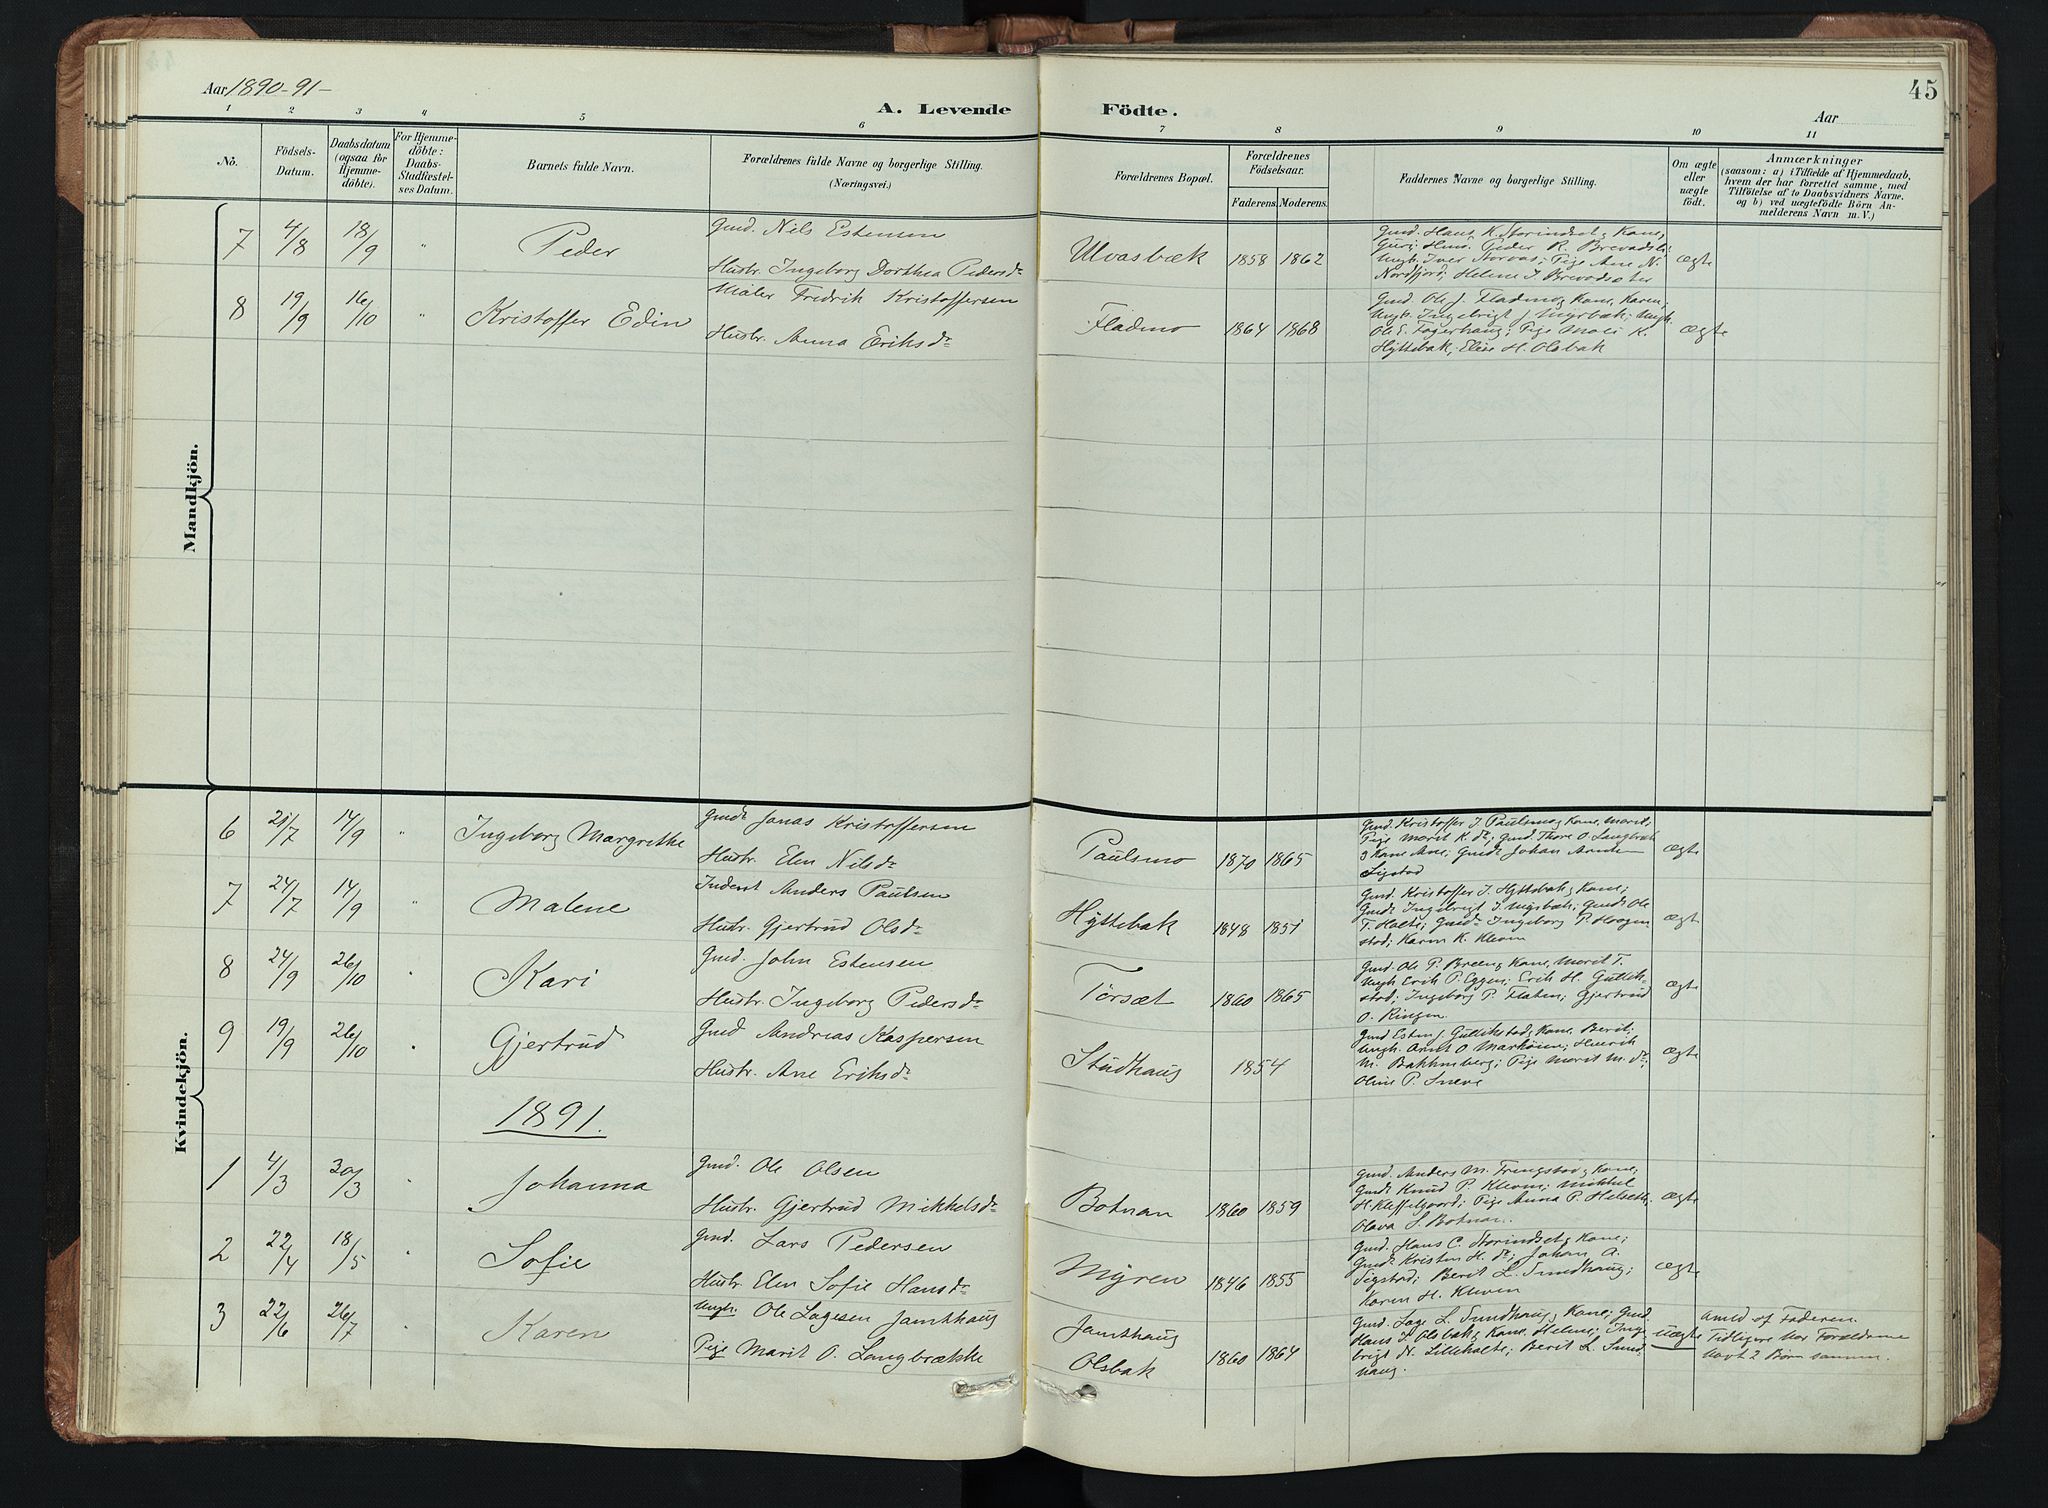 Aar 1890-91-
A. Levende Födte.
45
Aar
1 2 3 4 5 6 7 8 9 10 11
No.
Födsels-Datum.
Daabsdatum (ogsaa for Hjemme-döbte).
For Hjemme-döbte: Daabs-Stadfæstel-ses Datum.
Barnets fulde Navn.
Forældrenes fulde Navne og borgerlige Stilling.
(Næringsvei.)
Forældrenes Bopæl.
Forældrenes Födselsaar.
Faderens. Moderens.
Faddernes Navne og borgerlige Stilling.
Om ægte eller uægte födt.
Anmærkninger
(saasom: a) i Tilfælde af Hjemmedaab,
hvem der har forrettet samme, med
Tilföielse af to Daabsvidners Navne.
og b) ved uægtefödte Börn An-
melderens Navn m. V.)
Mandkjön.
7 4/8 18/9 " Peder
Gmd. Nils Estensen
Hustr. Ingeborg Dorthea Pedersdr
Ulvasbæk 1858 1862
Gmd. Hans K. Storindset, Kane,
Guri; Gmd. Peder R. Brevadsl.
Ungk. Iver Storvas; Pige Ane N.
Nordfjord; Helene I. Brevadsæter
Ægte
8 19/9 16/10 " Kristoffer Edin
Maler Fredrik Kristoffersen
Hustr. Anna Eriksdr
Fladmo 1864 1868
Gmd. Ole J. Fladmo, Kane, Karen;
Ungk. Ingebrigt J. Myrbæk; Ungk.
Ole E. Fagerhaug; Pige Mali K.
Hyttebak; Elise H. Olsbak
Ægte
Kvindekjön.
6 21/7 14/9 " Ingeborg Margrethe
Gmd. Jonas Kristoffersen
Hustr. Elen Nilsdr
Paulsmo 1870 1865
Gmd. Kristoffer J. Paulsmo, Kane, Marit;
Pige Marit K. dr; Gmd. Thore O. Langbræk
Kane Ane; Gmd. Johan Arntsen
Sigstad
Ægte
7 24/7 14/9 " Malene
Inderst Anders Paulsen
Hustr. Gjertrud Olsdr
Hyttebak 1848 1851
Gmd. Kristoffer J. Hyttebak, Kane;
Gmd. Ingebrigt J. Myrbæk; Gmds Ole
T. Holte; Gmd. Ingeborg P. Haagen
stad; Karen K. Kleven
Ægte
8 24/9 26/10 " Kari
Gmd. John Estensen
Hustr. Ingeborg Pedersdr
Torsæt 1860 1865
Gmd. Ole P. Breen, Kane, Marit T.
Ungk. Erik P. Eggen; Erik H. Gullik-
stad; Ingeborg P. Flaten; Gjertrud
O. Ringen.
Ægte
9 19/9 26/10 " Gjertrud
Gmd Andreas Kaspersen
Hustr. Ane Eriksdr
Studhaug 1854
Gmd Esten J. Gullikstad, Kane, Berit;
Ungk. Arnt O. Marhøien; Henrik
M. Bakkenberg; Pige Marit M. dr;
Oline P. Sneve
Ægte
1891.
1 4/3 30/3 " Johanna
Gmd. Ole Olsen
Hustr. Gjertrud Mikkelsdr
Botnan 1860 1859
Gmd. Anders M. Tringstad, Kane;
Gmd. Knud P. Kleven; Mikkel
H. Kleffelgaard; Pige Anna P. Helseth;
Olava S. Botnan.
Ægte
2 22/4 18/5 " Sofie
Gmd. Lars Pedersen
Hustr. Elen Sofie Hansdr
Myren 1846 1855
Gmd. Hans C. Storindset, Kane;
Gmd. Kristen H. dr; Johan A.
Sigstad; Berit L. Sundhaug;
Karen H. Kleven
Ægte
3 22/6 26/7 Karen
Ungk. Ole Lagesen Jamthaug
Pige Marit O. Langbrække
Jamthaug
Olsbak 1860 1864
Gmd. Lage L. Sundhaug, Kane; Gmd.
Hans K. Olsbak, Kane, Helene; Inge
brigt N. Lilleholte; Berit L. Sund-
haug.
Uægte
Anmld af Faderen.
Tidligere har Forældrene
havt 2 Børn sammen.